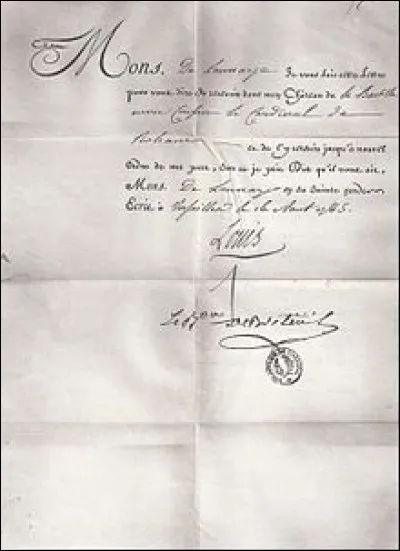 Mons. De Launay Je vous fais cette Lettre
pour vous dire de recevoir dans mon Château de la Bastille
mon Cousin le Cardinal de
Rohan
et de l'y retenir jusqu'à nouvel
Ordre de ma part. Sur ce je prie Dieu qu'il vous ait,
Mons. De Launay en sa Sainte garde.
Ecrit à Versailles le 15 Aout 1785.
Louis
Le Bon De Breteuil